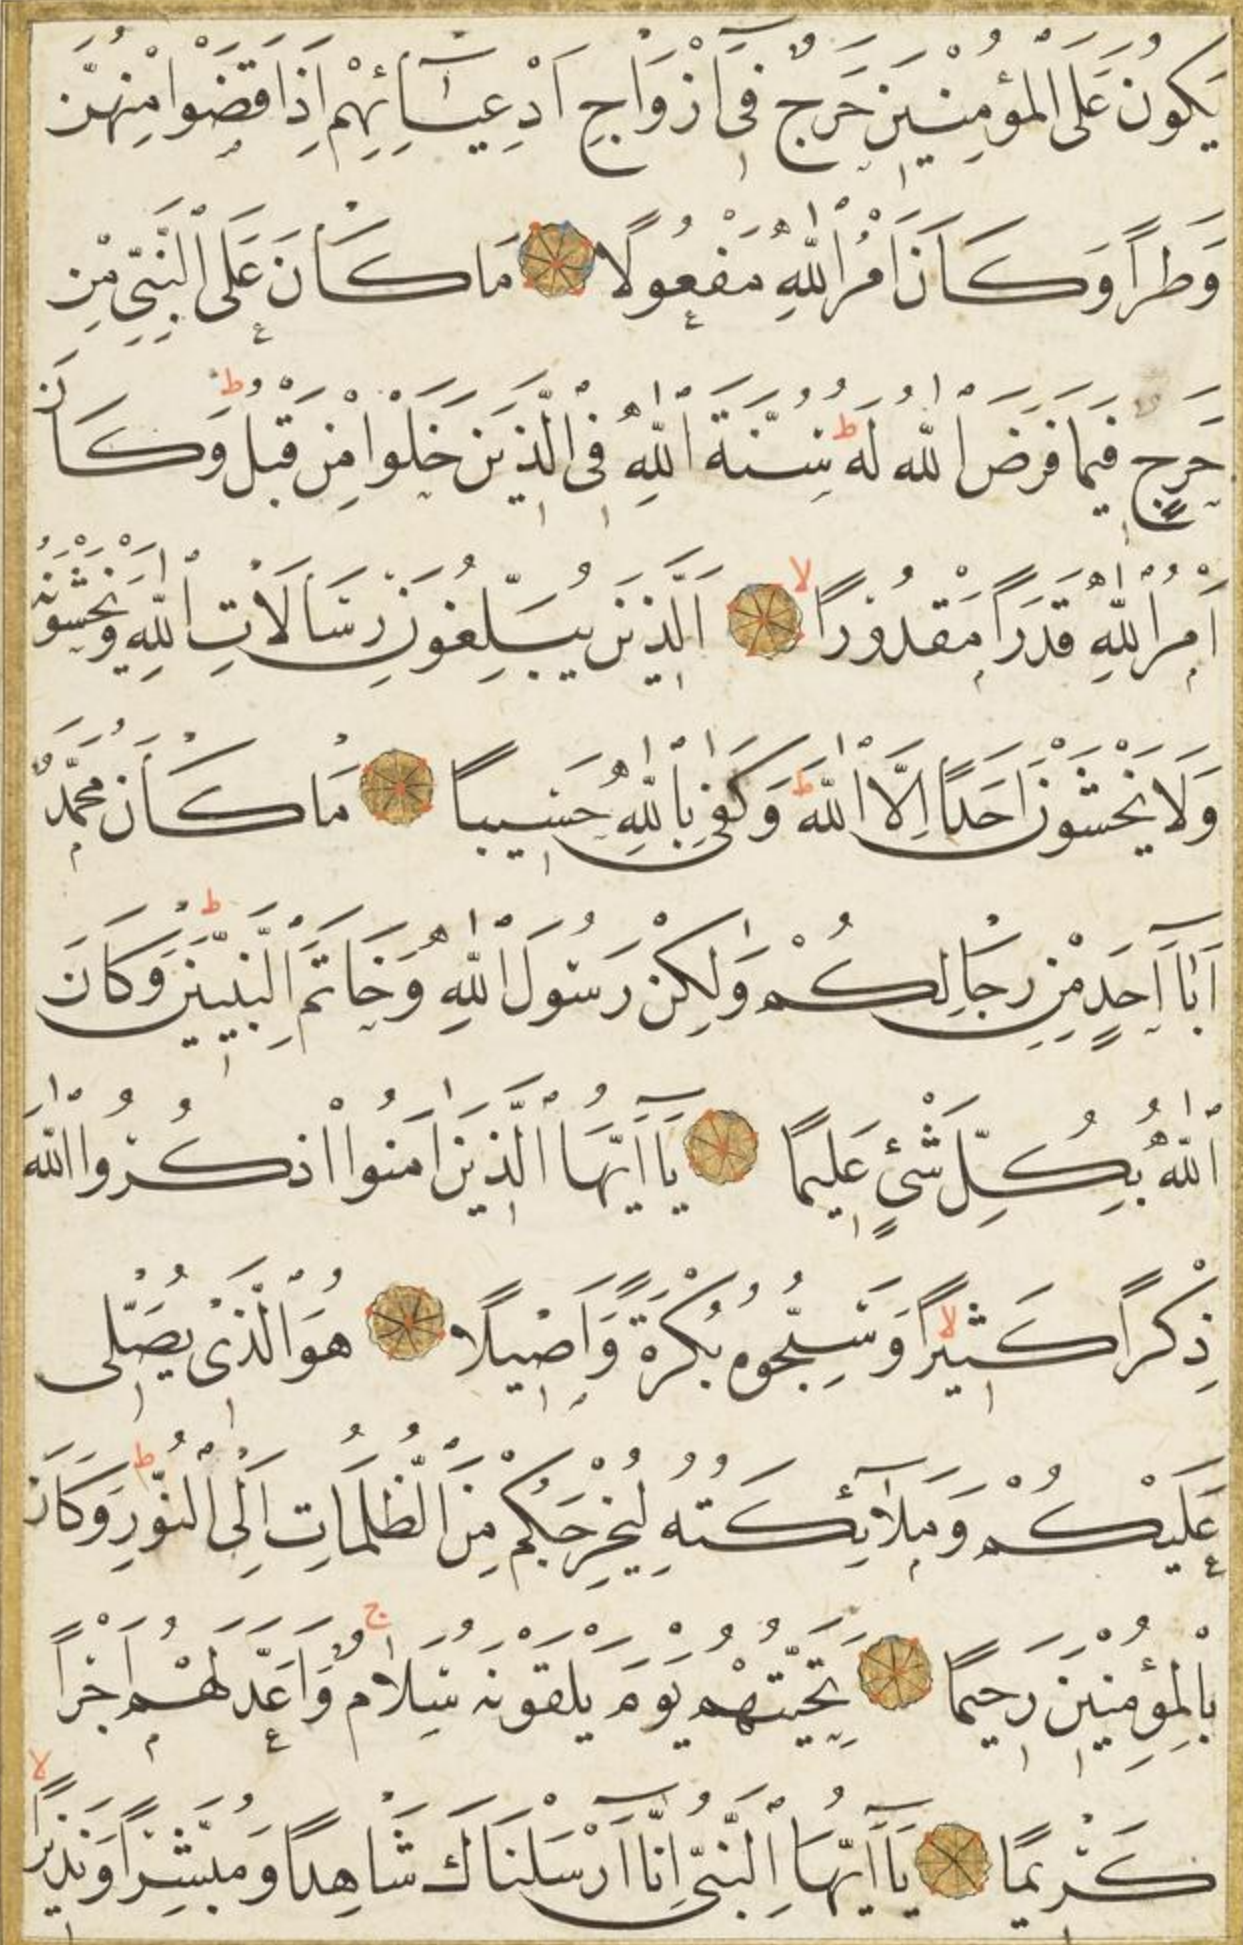 يَكُونَ عَلَى الْمُؤْمِنِينَ حَرَجٌ فِىٓ اَزْوَاجِ اَدْعِيَٓائِهِمْ اِذَا قَضَوْا مِنْهُنَّ
وَطَرًا وَكَانَ اَمْرُ اللّٰهِ مَفْعُولًا مَا كَانَ عَلَى النَّبِىِّ مِنْ
حَرَجٍ فِيمَا فَرَضَ اللّٰهُ لَهُ ط سُنَّةَ اللّٰهِ فِى الَّذِينَ خَلَوْا مِنْ قَبْلُ ط وَكَانَ
اَمْرُ اللّٰهِ قَدَرًا مَقْدُورًا لا اَلَّذِينَ يُبَلِّغُونَ رِسَالَاتِ اللّٰهِ وَيَخْشَوْنَهُ
وَلَا يَخْشَوْنَ اَحَدًا اِلَّا اللّٰهَ ط وَكَفٰى بِاللّٰهِ حَسِيبًا مَا كَانَ مُحَمَّدٌ
اَبَٓا اَحَدٍ مِنْ رِجَالِكُمْ وَلٰكِنْ رَسُولَ اللّٰهِ وَخَاتَمَ النَّبِيِّينَ ط وَكَانَ
اللّٰهُ بِكُلِّ شَىْءٍ عَلِيمًا يَٓا اَيُّهَا الَّذِينَ اٰمَنُوا اذْكُرُوا اللّٰهَ
ذِكْرًا كَثِيرًا لا وَسَبِّحُوهُ بُكْرَةً وَاَصِيلًا هُوَ الَّذِى يُصَلِّى
عَلَيْكُمْ وَمَلَٓائِكَتُهُ لِيُخْرِجَكُمْ مِنَ الظُّلُمَاتِ اِلَى النُّورِ ط وَكَانَ
بِالْمُؤْمِنِينَ رَحِيمًا تَحِيَّتُهُمْ يَوْمَ يَلْقَوْنَهُ سَلَامٌ ج وَاَعَدَّ لَهُمْ اَجْرًا
كَرِيمًا يَٓا اَيُّهَا النَّبِىُّ اِنَّٓا اَرْسَلْنَاكَ شَاهِدًا وَمُبَشِّرًا وَنَذِيرًا لا